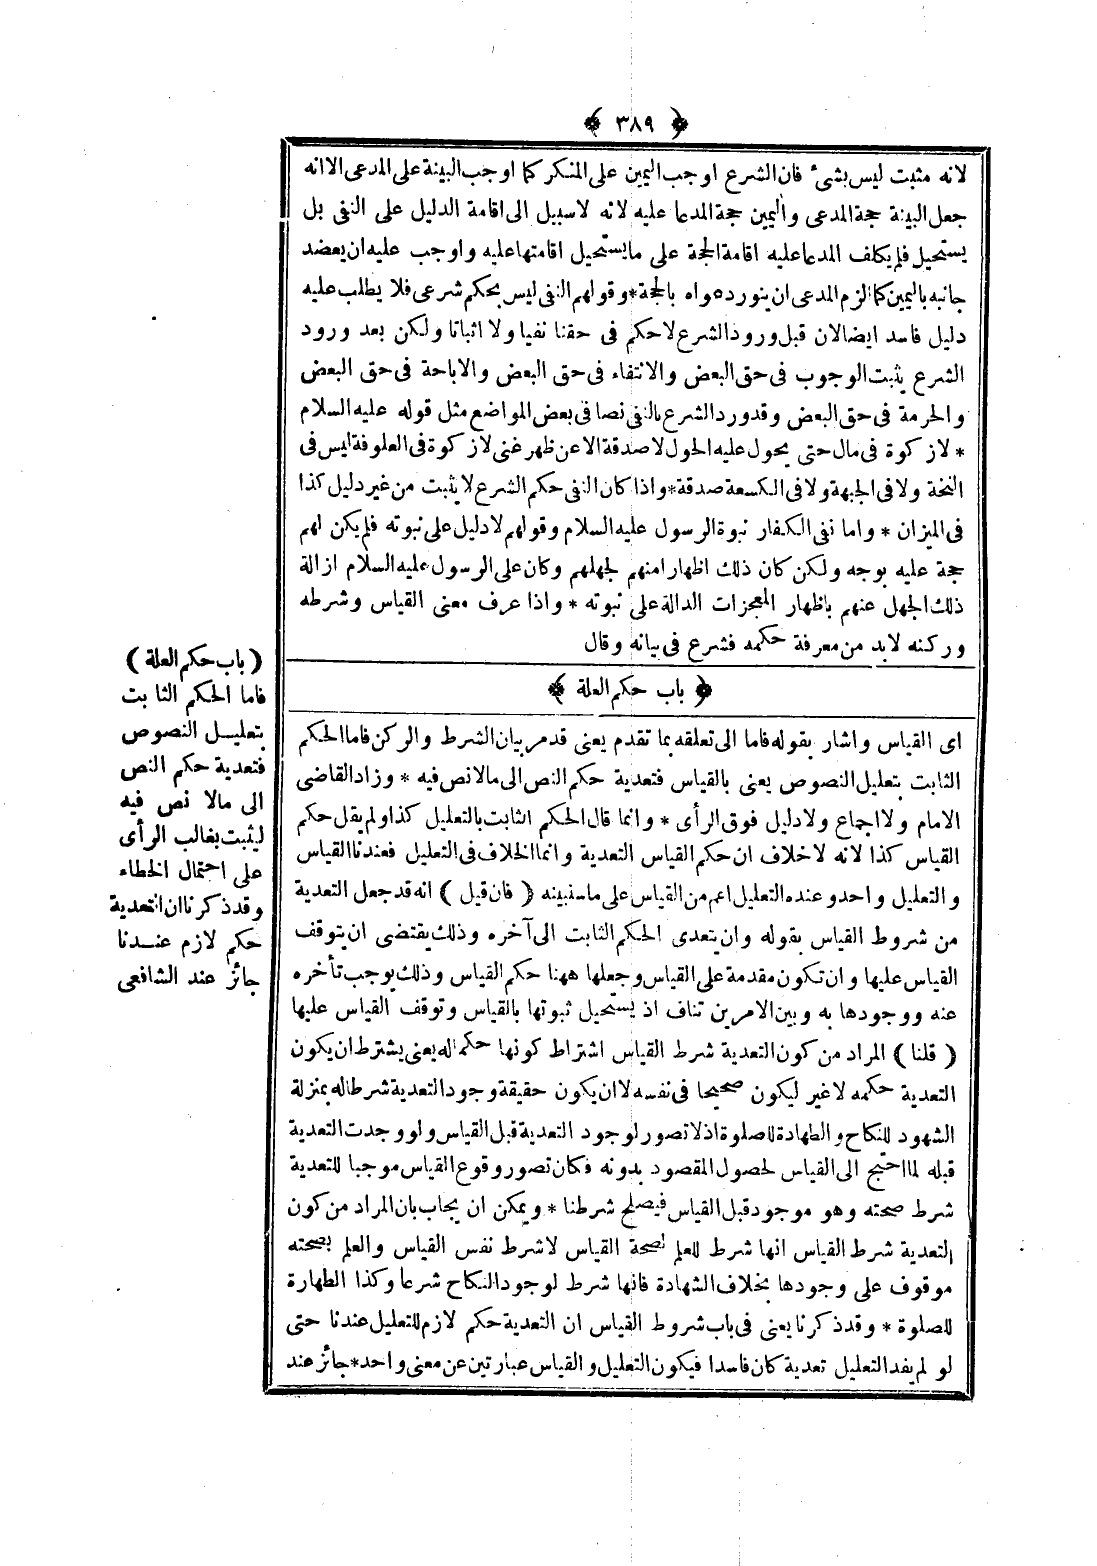 ﴿ ٣٨٩ ﴾
لانه مثبت ليس بشئ فان الشرع اوجب اليمين على المنكر كما اوجب البينة على المدعى الا انه
جعل البينة حجة المدعى واليمين حجة المدعا عليه لانه لاسبيل الى اقامة الدليل على النفى بل
يستحيل فلم يكلف المدعا عليه اقامة الحجة على ما يستحيل اقامتها عليه واوجب عليه ان يعضد
جانبه باليمين كما الزم المدعى ان ينور دعواه بالحجة * وقولهم النفى ليس بحكم شرعى فلا يطلب عليه
دليل فاسد ايضا لان قبل ورود الشرع لاحكم فى حقنا نفيا ولا اثباتا ولكن بعد ورود
الشرع يثبت الوجوب فى حق البعض والانتفاء فى حق البعض والاباحة فى حق البعض
والحرمة فى حق البعض وقد ورد الشرع بالنفى نصا فى بعض المواضع مثل قوله عليه السلام
* لازكوة فى مال حتى يحول عليه الحول لاصدقة الا عن ظهر غنى لازكوة فى العلوفة ليس فى
النخة ولا فى الجبهة ولا فى الكسعة صدقة * واذا كان النفى حكم الشرع لا يثبت من غير دليل كذا
فى الميزان * واما نفى الكفار نبوة الرسول عليه السلام وقولهم لادليل على نبوته فلم يكن لهم
حجة عليه بوجه ولكن كان ذلك اظهارا منهم لجهلهم وكان على الرسول عليه السلام ازالة
ذلك الجهل عنهم باظهار المعجزات الدالة على نبوته * واذا عرف معنى القياس وشرطه
وركنه لابد من معرفة حكمه فشرع فى بيانه وقال
﴿ باب حكم العلة ﴾
اى القياس واشار بقوله فاما الى تعلقه بما تقدم يعنى قد مر بيان الشرط والركن فاما الحكم
الثابت بتعليل النصوص يعنى بالقياس فتعدية حكم النص الى مالا نص فيه * وزاد القاضى
الامام ولا اجماع ولا دليل فوق الرأى * وانما قال الحكم الثابت بالتعليل كذا ولم يقل حكم
القياس كذا لانه لاخلاف ان حكم القياس التعدية وانما الخلاف فى التعليل فعندنا القياس
والتعليل واحد وعنده التعليل اعم من القياس على ما سنبينه ( فان قيل ) انه قد جعل التعدية
من شروط القياس بقوله وان يتعدى الحكم الثابت الى آخره وذلك يقتضى ان يتوقف
القياس عليها وان تكون مقدمة على القياس وجعلها ههنا حكم القياس وذلك يوجب تأخره
عنه ووجودها به وبين الامرين تناف اذ يستحيل ثبوتها بالقياس وتوقف القياس عليها
( قلنا ) المراد من كون التعدية شرط القياس اشتراط كونها حكما له يعنى يشترط ان يكون
التعدية حكمه لاغير ليكون صحيحا فى نفسه لا ان يكون حقيقة وجود التعدية شرطا له بمنزلة
الشهود للنكاح والطهادة للصلوة اذ لا تصور لوجود التعدية قبل القياس ولو وجدت التعدية
قبله لما احتيج الى القياس لحصول المقصود بدونه فكان تصور وقوع القياس موجبا للتعدية
شرط صحته وهو موجود قبل القياس فيصلح شرطنا * ويمكن ان يجاب بان المراد من كون
التعدية شرط القياس انها شرط للعلم لصحة القياس لاشرط نفس القياس والعلم بصحته
موقوف على وجودها بخلاف الشهادة فانها شرط لوجود النكاح شرعا وكذا الطهارة
للصلوة * وقد ذكرنا يعنى فى باب شروط القياس ان التعدية حكم لازم للتعليل عندنا حتى
لو لم يفد التعليل تعدية كان فاسدا فيكون التعليل والقياس عبارتين عن معنى واحد * جائز عند
( باب حكم العلة )
فاما الحكم الثابت
بتعليل النصوص
فتعدية حكم النص
الى مالا نص فيه
ليثبت بغالب الرأى
على احتمال الخطاء
وقد ذكرنا ان التعدية
حكم لازم عندنا
جائز عند الشافعى